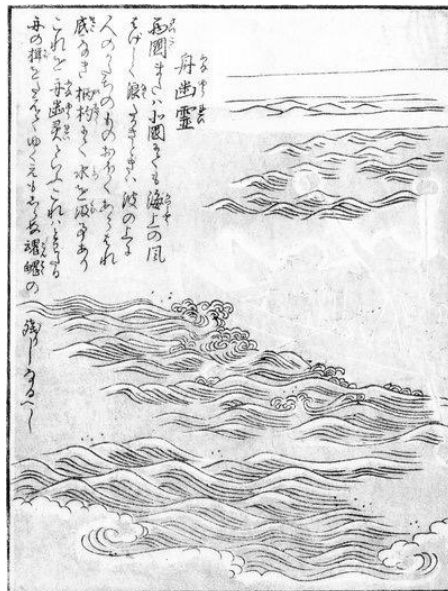 舟幽霊
西国または北国にても海上の風
はげしく浪たかきときは波の上に
人のかたちのものおほくあらはれ
底なき柄杓にて水を汲事あり
これを舟幽霊といふこれはとわたる
舟の楫をたえてゆくえもしらぬ魂魄の
残りしなるべし